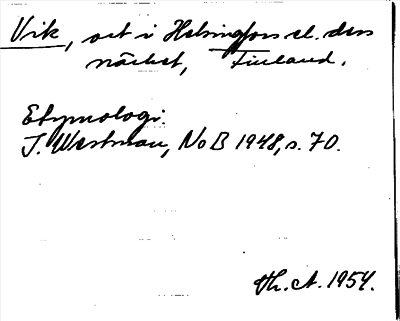 Vik, ort i Helsingfors el. dess
närhet, Finland.
Etymologi.
T. Westman, NoB 1948, s. 70.
Th. A. 1954.